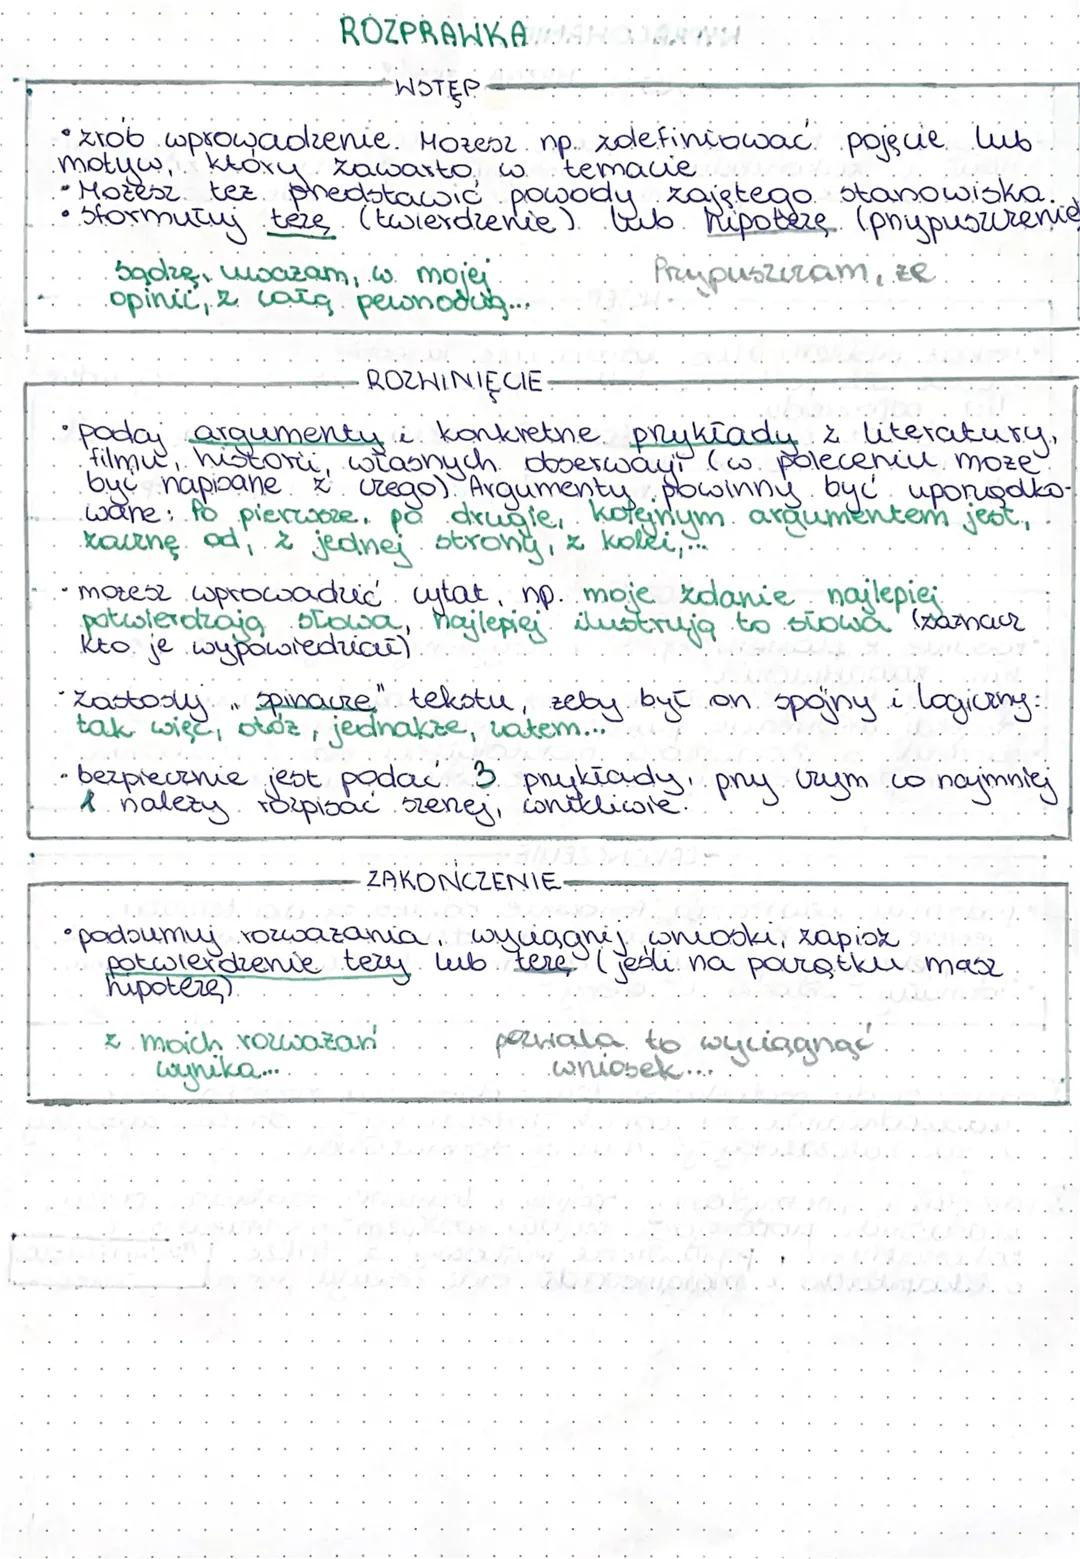 ROZPRAWKA
WSTĘP
• zrób wprowadzenie. Możesz np. zdefiniować pojęcie lub
motyw, który zawarto w temacie
• Możesz też przedstawić powody zajętego stanowiska.
• sformułuj tezę (twierdzenie) lub hipotezę (przypuszczenie
sądzę, uważam, w mojej
Przypuszczam, że
opinii, z całą pewnością...
ROZWINIĘCIE
• podaj argumenty i konkretne przykłady z literatury,
filmu, historii, własnych obserwacji (w poleceniu może
być napisane z czego). Argumenty powinny być uporządko-
wane: Po pierwsze, po drugie, kolejnym argumentem jest,
zacznę od, z jednej strony, z kolei,...
• możesz wprowadzić cytat, np. moje zdanie najlepiej
potwierdzają słowa, najlepiej ilustrują to słowa (zaznacz
kto je wypowiedział)
• zastosuj „spinacze" tekstu, żeby był on spójny i logiczny:
tak więc, otóż, jednakże, zatem...
• bezpiecznie jest podać 3 przykłady, przy czym co najmniej
1 należy rozpisać szerzej, wnikliwie.
ZAKOŃCZENIE
• podsumuj rozważania, wyciągnij wnioski, zapisz
potwierdzenie tezy lub tezę (jeśli na początku masz
hipotezę)
z moich rozważań
pozwala to wyciągnąć
wynika...
wniosek...